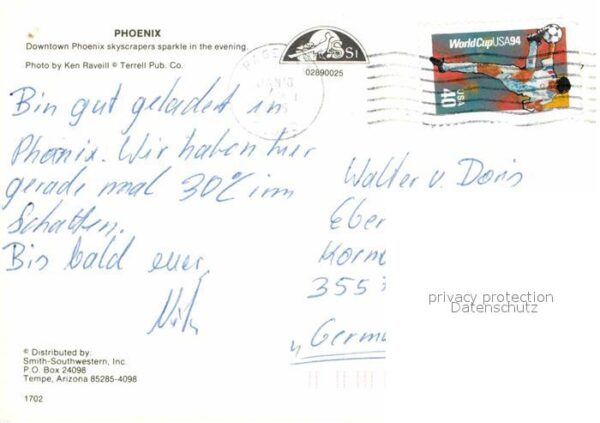 PHOENIX
Downtown Phoenix skyscrapers sparkle in the evening.
Photo by Ken Raveill © Terrell Pub. Co.
SSI
02890025
World Cup USA 94
USA
40
Bin gut gelandet in
Phoenix. Wir haben hier
gerade mal 30°C im
Schatten.
Bis bald euer
Walter u. Doris
Eber
Korn
355
Germ
privacy protection
Datenschutz
© Distributed by:
Smith-Southwestern, Inc.
P.O. Box 24098
Tempe, Arizona 85285-4098
1702